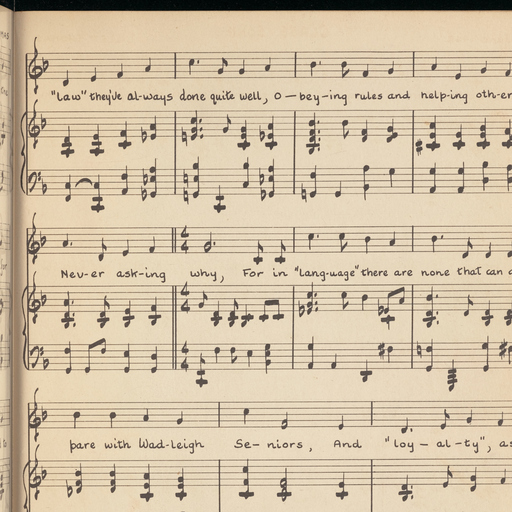 "law" they've al-ways done quite well, O-bey-ing rules and help-ing oth-er
Nev-er ask-ing why, For in "lang-uage" there are none that can
pare with Wad-leigh Se-niors, And "loy-al-ty", as